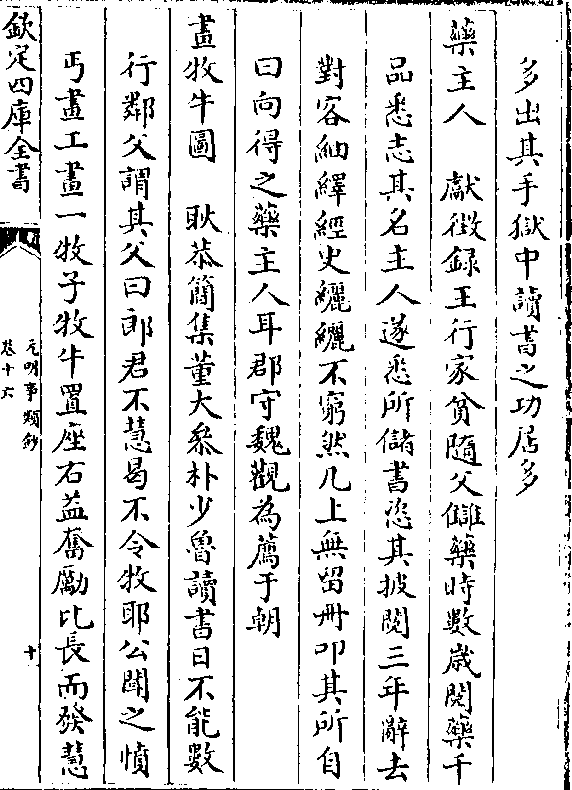 多出其手獄中讀書之功居多
藥主人　獻徴録王行家貧隨父讎藥時數歳閲藥千
品悉志其名主人遂悉所儲書恣其披閲三年辭去
對客紬繹經史纚纚不窮然几上無留冊叩其所自
曰向得之藥主人耳郡守魏觀為薦于朝
畫牧牛圖　耿恭簡集董大叅朴少魯讀書日不能數
行鄰父謂其父曰郎君不慧曷不令牧耶公聞之憤
丐畫工畫一牧子牧牛置座右益奮勵比長而發慧
欽定四庫全書
元明事類鈔
卷十六
十